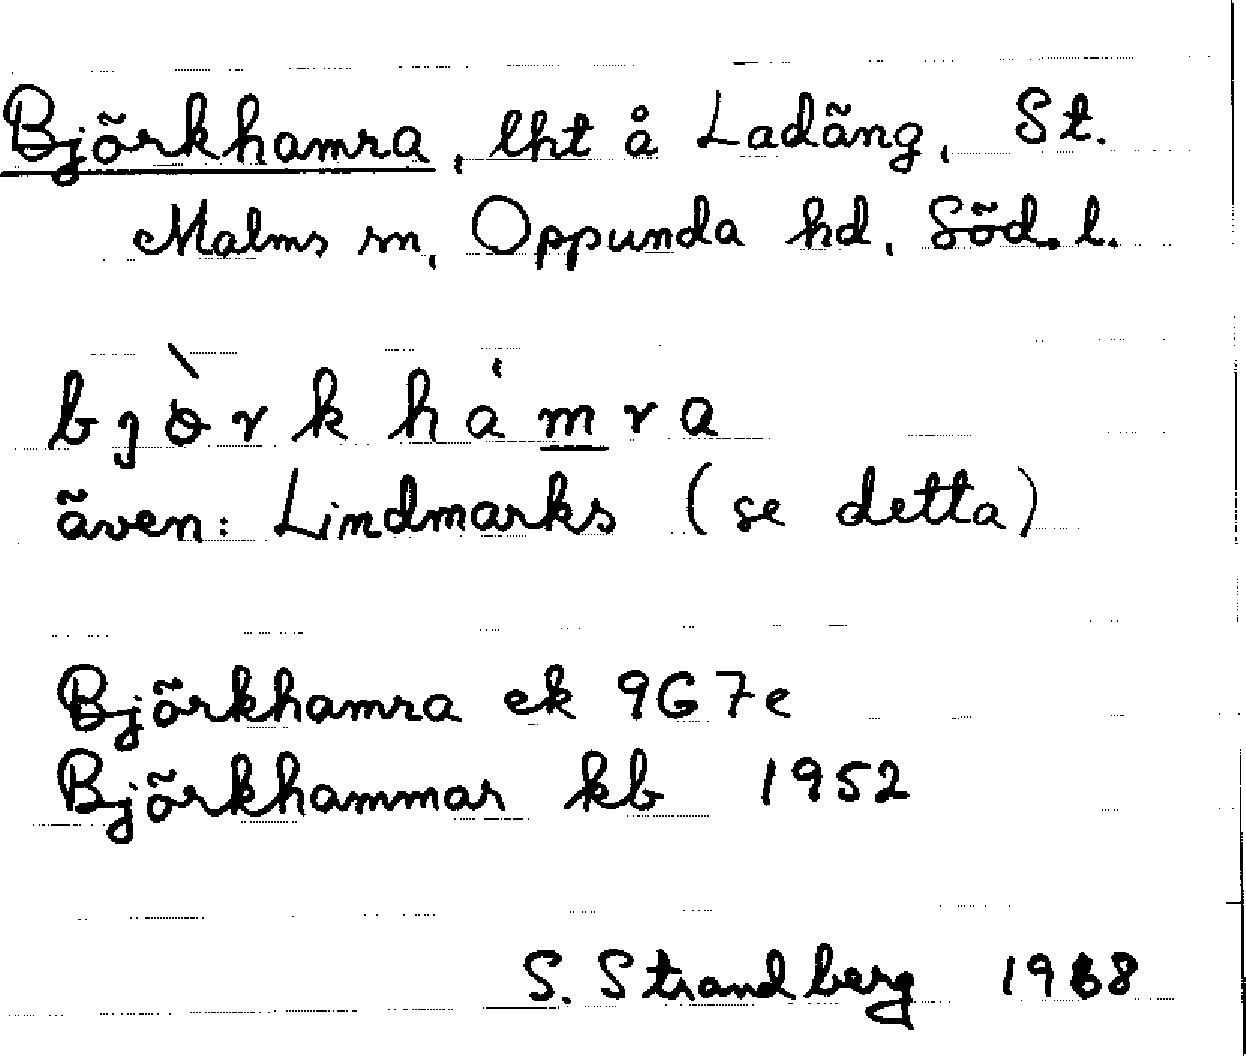 Björkhamra, lht å Ladäng, St.
Malms sn, Oppunda hd, Söd. l.
bjòrkhámra
även: Lindmarks (se detta)
Björkhamra ek 9G7e
Björkhammar kb 1952
S. Strandberg 1968